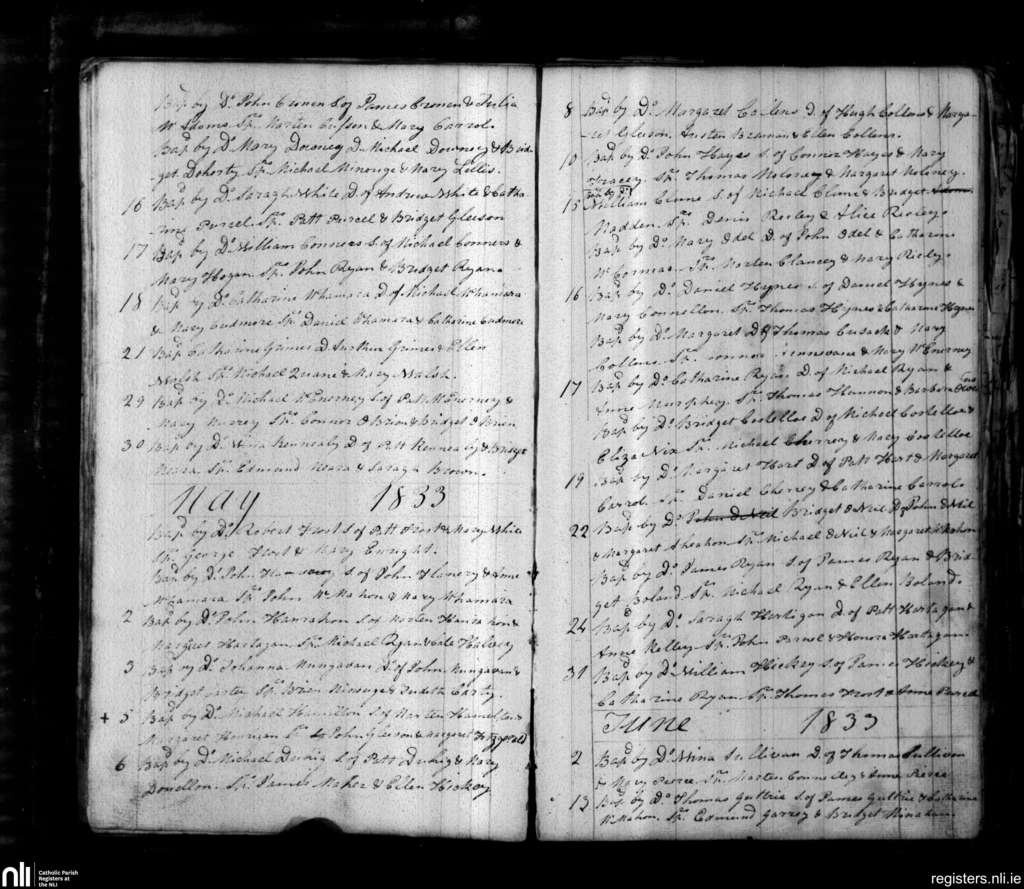 Bap. by Do. John Cronen S. of James Cronen & Julia
Sp. Marten & Mary Carrol.
Bap. by Do. Mary Downey D. Michael Downey & Brid-
get Doherty Sp. Michael Minouge & Mary Lillis.
16 Bap. by Do. Saragh White D. of Andrew White & Catha
rine Purcel Sp. Patt Purcel & Bridget Gleeson
17 Bap. by Do. William Conners S. of Michael Conners &
Mary Hogan Sp. John Ryan & Bridget Ryan
18 Bap. by Do. Catharine McNamara D. of Michael McNamara
& Mary Cudmore Sp. Daniel & Catharine Cudmore
21 Bap. Catharine Grimes D. Grimes & Ellen
Walsh Sp. Michael Quane & Mary Walsh.
29 Bap. by Do. Michael McEnerney S. of Patt McEnerney &
Mary Sp. Connor OBrien & Bridget OBrien
30 Bap. by Do. Kennealy D. of Patt Kennealy & Bridget
Meara Sp. Edmund Meara & Saragh Brown.
May 1833
Bap. by Do. Robert Frost S. of Patt Frost & Mary White
Sp. George Frost & Mary Enright.
Bap. by Do. John S. of John & Anne
McNamara Sp. John McMahon & Mary McNamara
2 Bap. by Do. John Hanrahan S. of Marten Hanrahan &
Hartagan Sp. Michael Ryan &
3 Bap. by Do. Johanna Mungavan D. of John Mungavan &
Bridget Sp. Brien Minouge & Judith Carty.
+ 5 Bap. by Do. Michael Hamilton S. of Marten Hamilton &
Margaret Sp. John Gleeson & Margaret Fitzgerald
6 Bap. by Do. Michael S. of Patt & Mary
Donellon. Sp. James Maher & Ellen Hickey
8 Bap. by Do. Margaret Collens D. of Hugh Collens & Marga-
ret Gleeson. & Ellen Collens.
10 Bap. by Do. John Hayes S. of Connor Hayes & Mary
Tracey Sp. Thomas Moloney & Margaret Moloney.
Bap. by Do.
15 William Clune S. of Michael Clune & Bridget
Madden Sp. Denis & Alice
Bap. by Do. Mary Odel D. of John Odel & Catharine
McCormac Sp. Marten Clancey & Mary
16 Bap. by Do. Daniel Hynes S. of Daniel Hynes &
Mary Connellon. Sp. Thomas Hynes & Catharine Hynes
Bap. by Do. Margaret D. of Thomas Cusack & Mary
Collens Sp. Connor & Mary McEnerney
17 Bap. by Do. Catharine Ryan D. of Michael Ryan &
Anne Murphey Sp. Thomas Hannon & Barbara
Bap. by Do. Bridget Costelloe D. of Michael Costelloe &
Eliza Nix Sp. Michael Cherrey & Mary Costelloe
19 Bap. by Do. Margaret Hart D. of Patt Hart & Margaret
Carrol Sp. Daniel Cherrey & Catharine Carrol
22 Bap. by Do. John O Neil Bridget O Neil D. of John O Neil
& Margaret Sheahan Sp. Michael O Neil & Margaret McMahon
Bap. by Do. James Ryan S. of James Ryan & Brid-
get Boland Sp. Michael Ryan & Ellen Boland.
24 Bap. by Do. Saragh Hartigan D. of Patt Hartagan &
Anne Kelley Sp. John & Honora Hartagan
31 Bap. by Do. William Hickey S. of James Hickey &
Catharine Ryan Sp. Thomas Frost & Anne Purcel
June 1833
2 Bap. by Do. Sullivan D. of Thomas Sullivan
& Mary Peirce Sp. Marten & Anne Peirce
13 Bap. by Do. Thomas Guthrie S. of James Guthrie & Catharine
McMahon Sp. Edmund & Bridget
nli Catholic Parish
Registers at
the NLI
registers.nli.ie